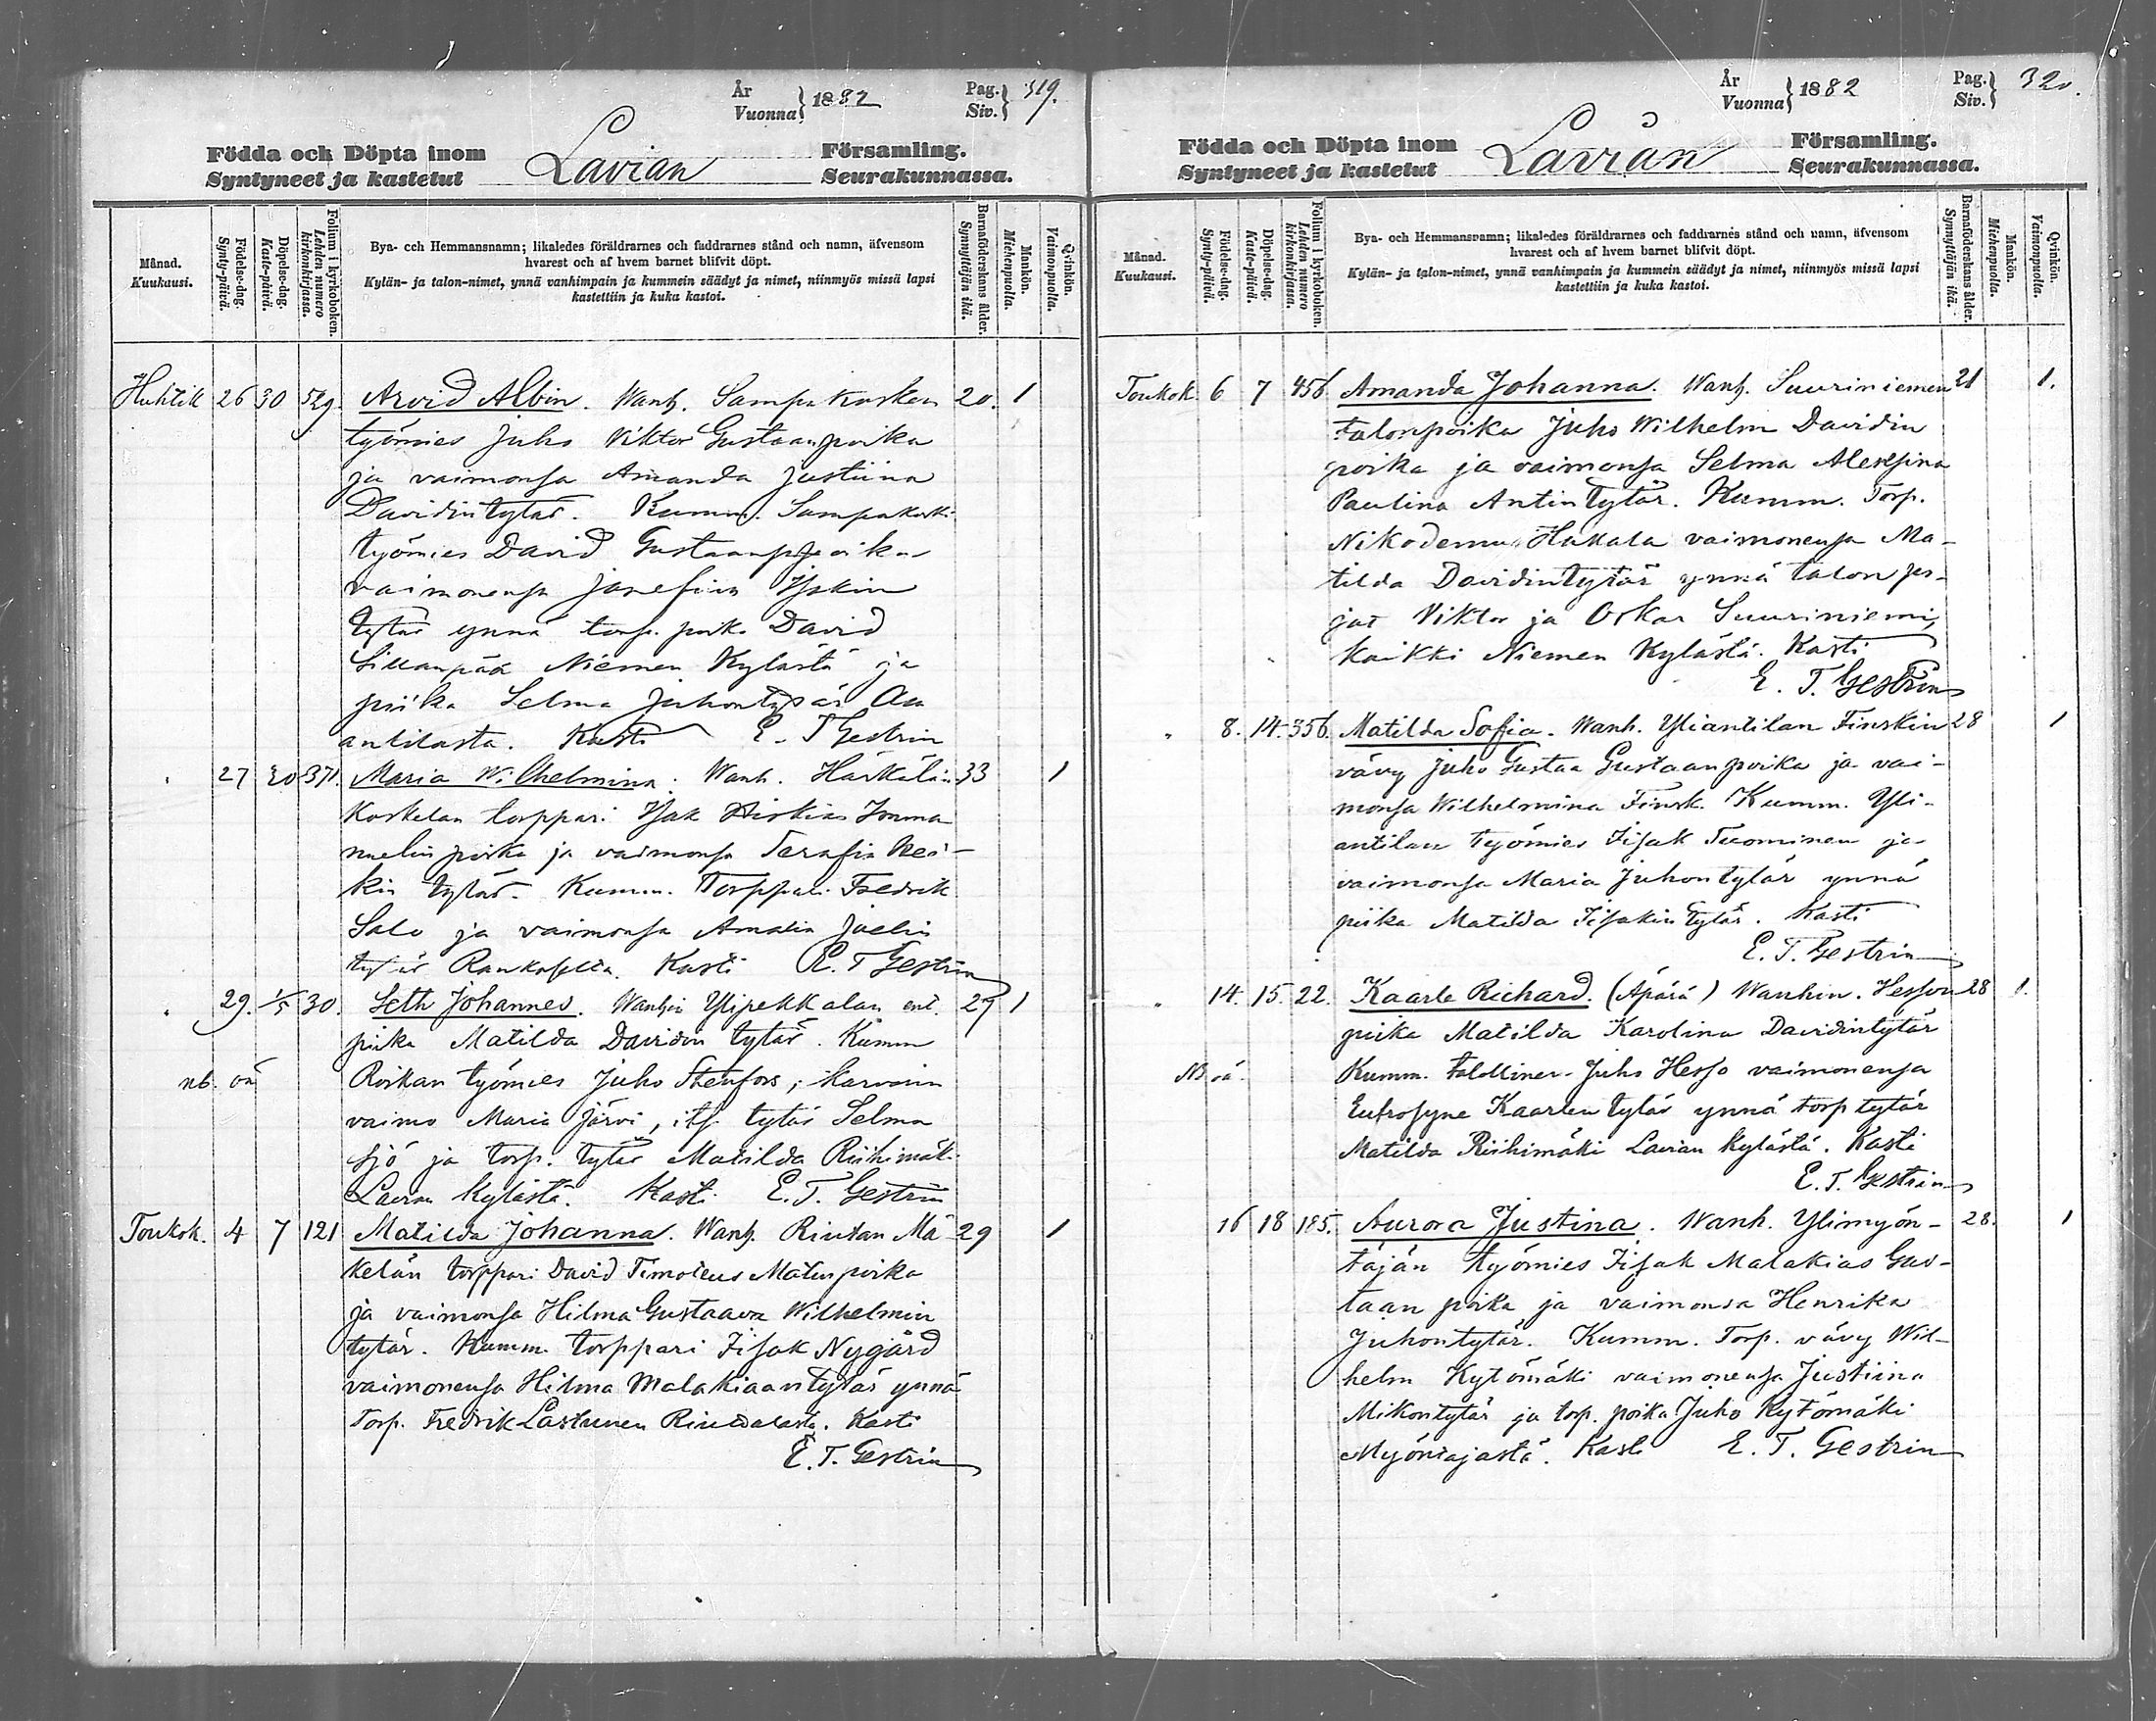 År
Vuonna } 1882
Pag.
Siv. } 319.
Födda och Döpta inom
Syntyneet ja kastetut
Lavian
Församling.
Seurakunnassa.
Månad.
Kuukausi.
Födelse-dag.
Synty-päivä.
Döpelse-dag.
Kaste-päivä.
Folium i kyrkoboken.
Lehden numero kirkonkirjassa.
Bya- och Hemmansnamn; likaledes föräldrarnes och faddrarnes stånd och namn, äfvensom
hvarest och af hvem barnet blifvit döpt.
Kylän- ja talon-nimet, ynnä vanhimpain ja kummein säädyt ja nimet, niinmyös missä lapsi
kastettiin ja kuka kastoi.
Barnaföderskans ålder.
Synnyttäjän ikä.
Mankön.
Miehenpuolta.
Qvinkön.
Vaimonpuolta.
Huhtik 26 30 529. Arvid Albin. Wanh. Sampakosken 20. 1
työmies Juho Viktor Gustaanpoika
ja vaimonsa Amanda Justiina
Davidintytär. Kumm. Sampakoski
työmies David Gustaanpoika
vaimonensa Josefiina
tytär ynnä torp. poika David
Sillanpää Niemen Kylästä ja
piika Selma Juhontytär
antilasta. Kasti E. T Gestrin
" 27 30 371. Maria Wilhelmina. Wanh. Härkälän 33 1
Koskelan torppari Isak Hiskias Imma
nuelin poika ja vaimonsa Serafia Hei-
kin tytär. Kumm. Torppari Fredrik
Salo ja vaimonsa Amalia Joelin
tytär. Kasti E. T Gestrin
" 29. 1/5 30. Seth Johannes. Wanhin Ylipekkalan ent. 27 1
piika Matilda Davidin tytär. Kumm
nb. oä Roikan työmies Juho Stenfors, karvarin
vaimo Maria Järvi, its. tytär Selma
Sjö ja torp. tytär Matilda Riihimäki
Lavian kylästä. Kasti E. T. Gestrin
Toukok. 4 7 121 Matilda Johanna. Wanh. Riutan Mä- 29 1
kelän torppari David Timoteus Matinpoika
ja vaimonsa Hilma Gustaava Wilhelmin
tytär. Kumm. torppari Iisak Nygård
vaimonensa Hilma Malakiaantytär ynnä
Torp. Fredrik Lastunen. Kasti
E. T. Gestrin
År
Vuonna } 1882
Pag.
Siv. } 320.
Födda och Döpta inom
Syntyneet ja kastetut
Lavian
Församling.
Seurakunnassa.
Månad.
Kuukausi.
Födelse-dag.
Synty-päivä.
Döpelse-dag.
Kaste-päivä.
Folium i kyrkoboken.
Lehden numero kirkonkirjassa.
Bya- och Hemmansnamn; likaledes föräldrarnes och faddrarnes stånd och namn, äfvensom
hvarest och af hvem barnet blifvit döpt.
Kylän- ja talon-nimet, ynnä vanhimpain ja kummein säädyt ja nimet, niinmyös missä lapsi
kastettiin ja kuka kastoi.
Barnaföderskans ålder.
Synnyttäjän ikä.
Mankön.
Miehenpuolta.
Qvinkön.
Vaimonpuolta.
Toukok. 6 7 456 Amanda Johanna. Wanh. Suuriniemen 21 1.
talonpoika Juho Wilhelm Davidin
poika ja vaimonsa Selma
Paulina Antintytär. Kumm. Torp.
Nikodemus Hakala vaimonensa Ma-
tilda Davidintytär ynnä talon po-
jat Viktor ja Oskar Suuriniemi,
kaikki Niemen Kylästä. Kasti
E. T. Gestrin
" 8. 14. 356. Matilda Sofia. Wanh. Yliantilan Finskin 28 1
vävy Juho Gustaa Gustaanpoika ja vai-
monsa Wilhelmina Finsk. Kumm. Yli-
antilan työmies Iisak Tuominen ja
vaimonsa Maria Juhontytär ynnä
piika Matilda Iisakin tytär. Kasti
E. T. Gestrin
" 14. 15. 22. Kaarle Richard. (Äpärä) Wanhin. Hesson 28 1.
piika Matilda Karolina Davidintytär
NB oä. Kumm. talollinen Juho Hesso vaimonensa
Eufrosyne Kaarlen tytär ynnä torp tytär
Matilda Riihimäki Lavian kylästä. Kasti
E. T. Gestrin
16 18 185. Aurora Justina. Wanh. Ylimyön- 28. 1
täjän työmies Iisak Malakias Gus-
taan poika ja vaimonsa Henrika
Juhontytär. Kumm. Torp. vävy Wil-
helm Kytömäki vaimonensa Justiina
Mikontytär ja torp. poika Juho Kytömäki
Myöntäjästä. Kasti E. T. Gestrin